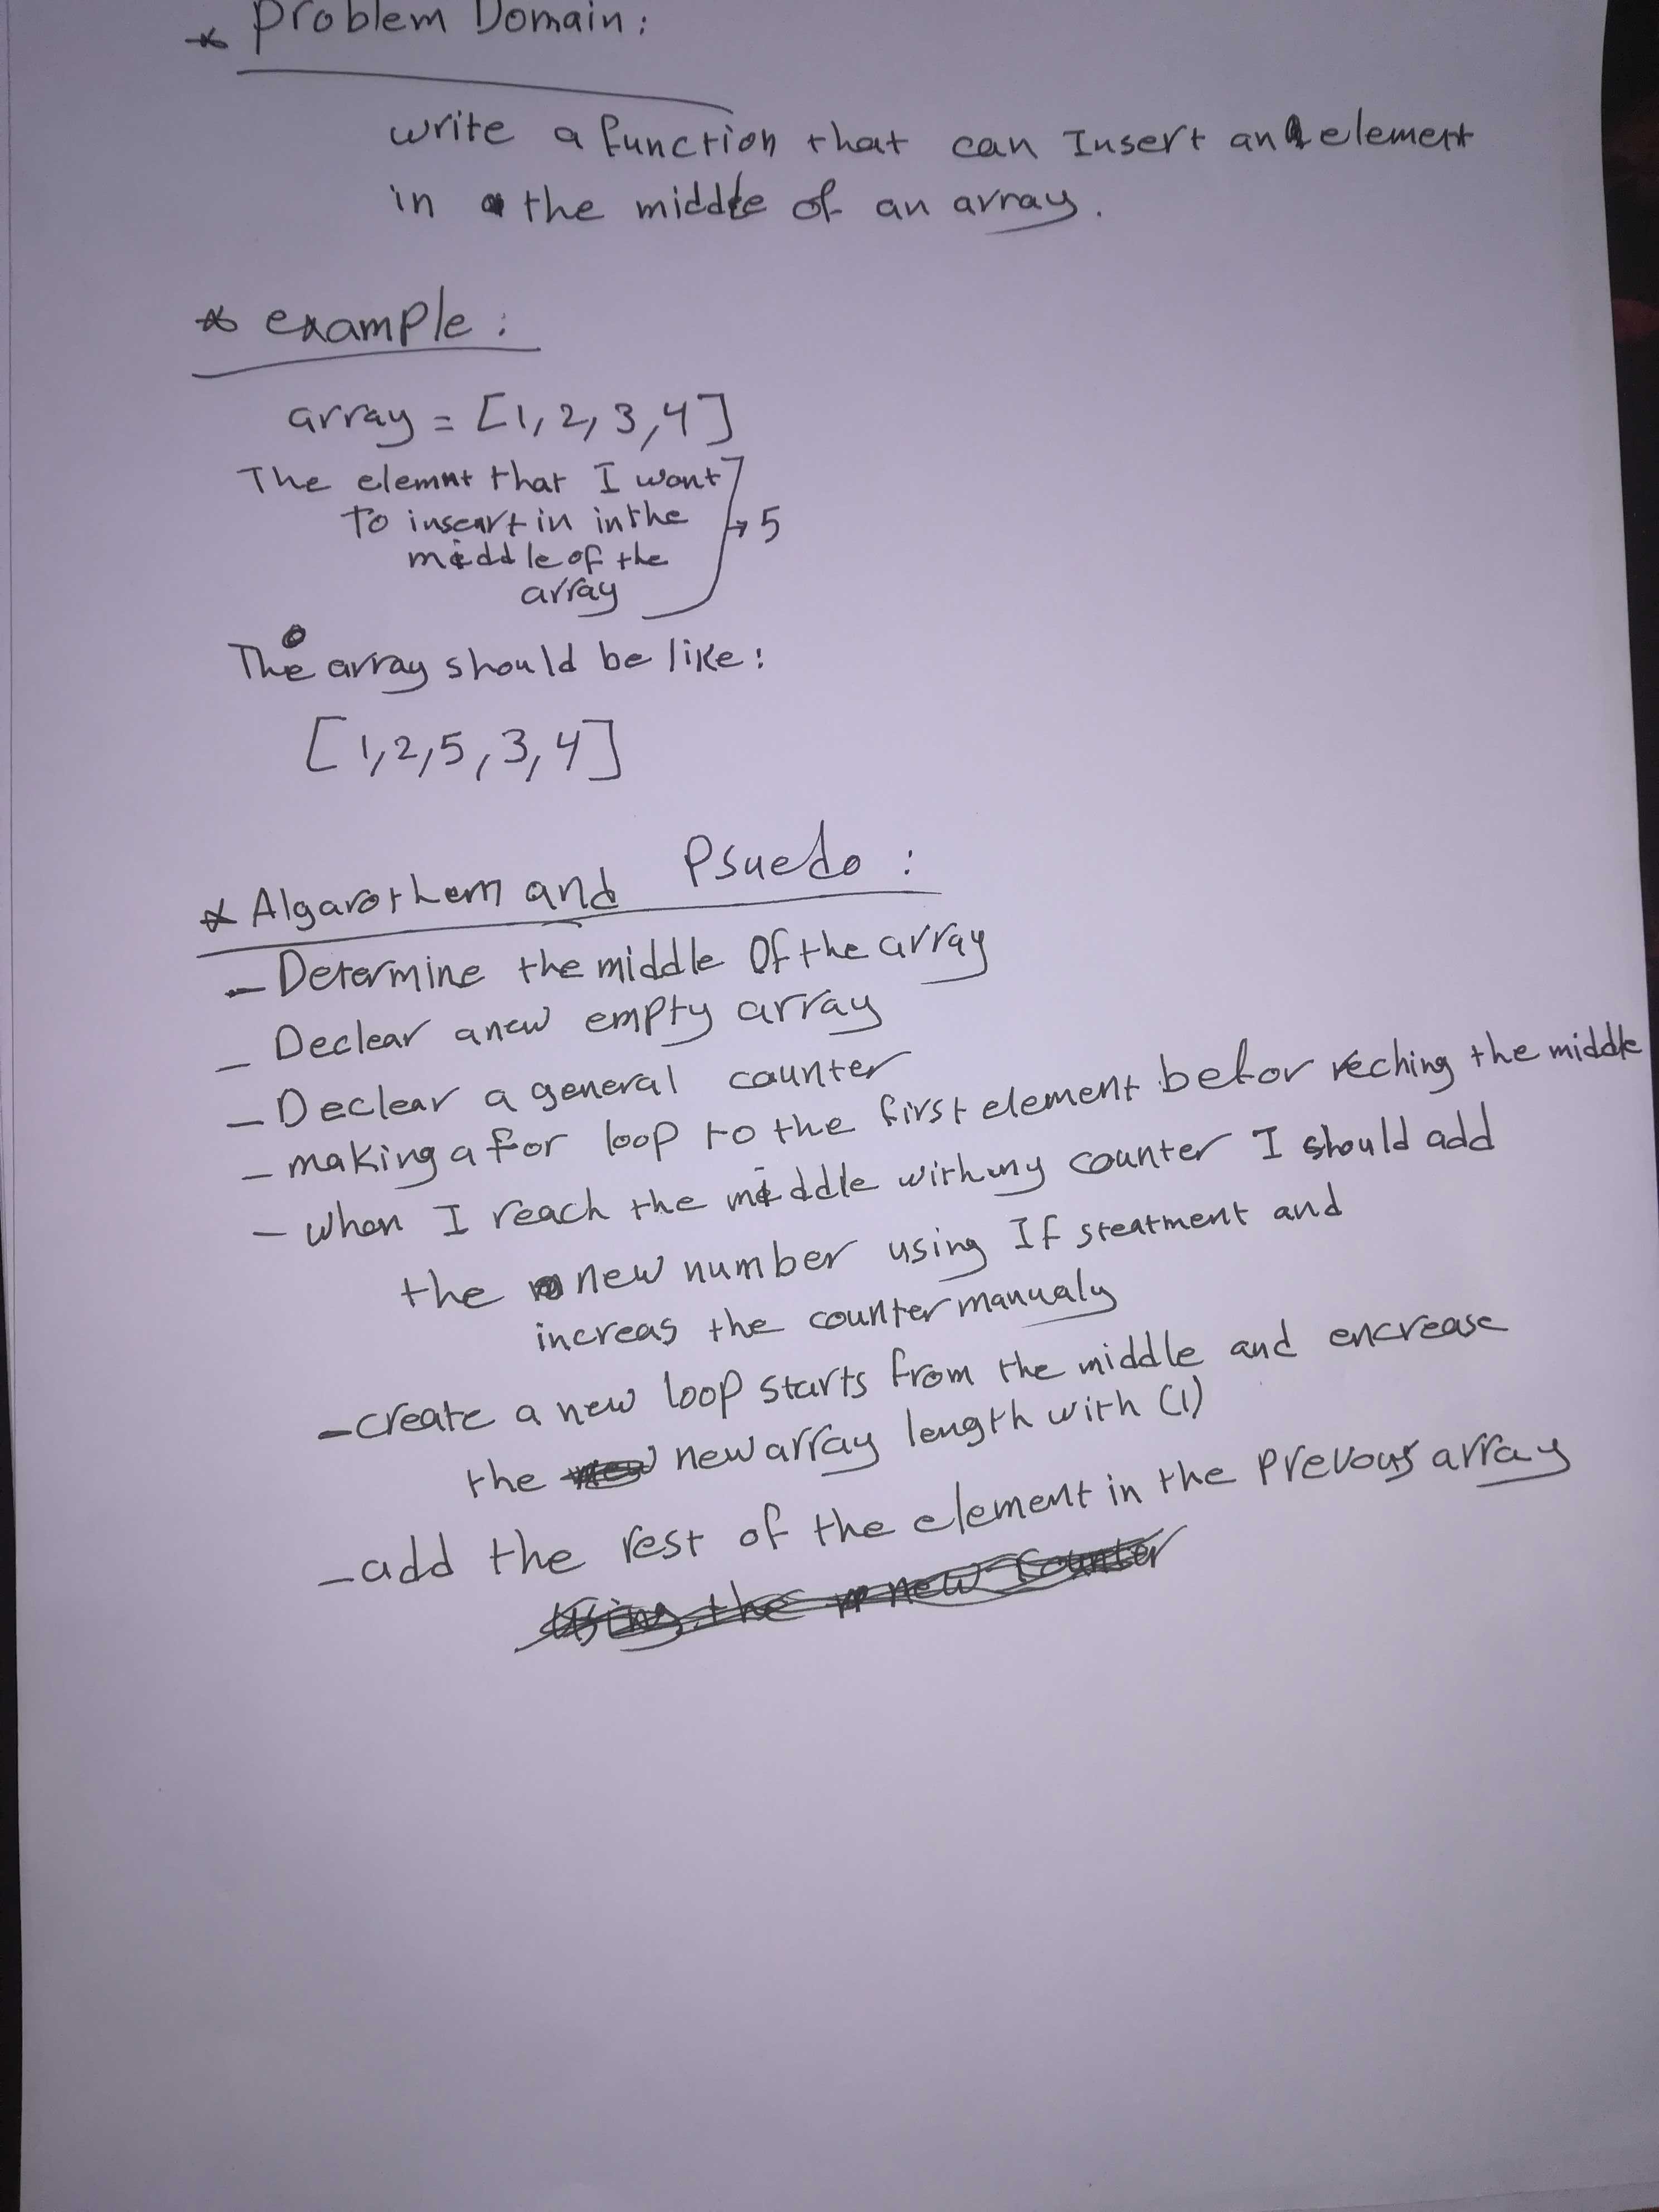 * Problem Domain:
write a function that can Insert an element
in the middle of an array.
* example:
array = [1,2,3,4]
The elemnt that I want
To inseart in in the
middle of the
array
→ 5
The array should be like:
[1,2,5,3,4]
* Algarothem and Psuedo:
- Determine the middle Of the array
- Declear a new empty array
- Declear a general counter
- making a for loop to the first element befor reching the middle
- when I reach the middle with my counter I should add
the new number using If steatment and
increas the counter manualy
- create a new loop starts from the middle and encrease
the new array length with (1)
- add the rest of the element in the prevous array